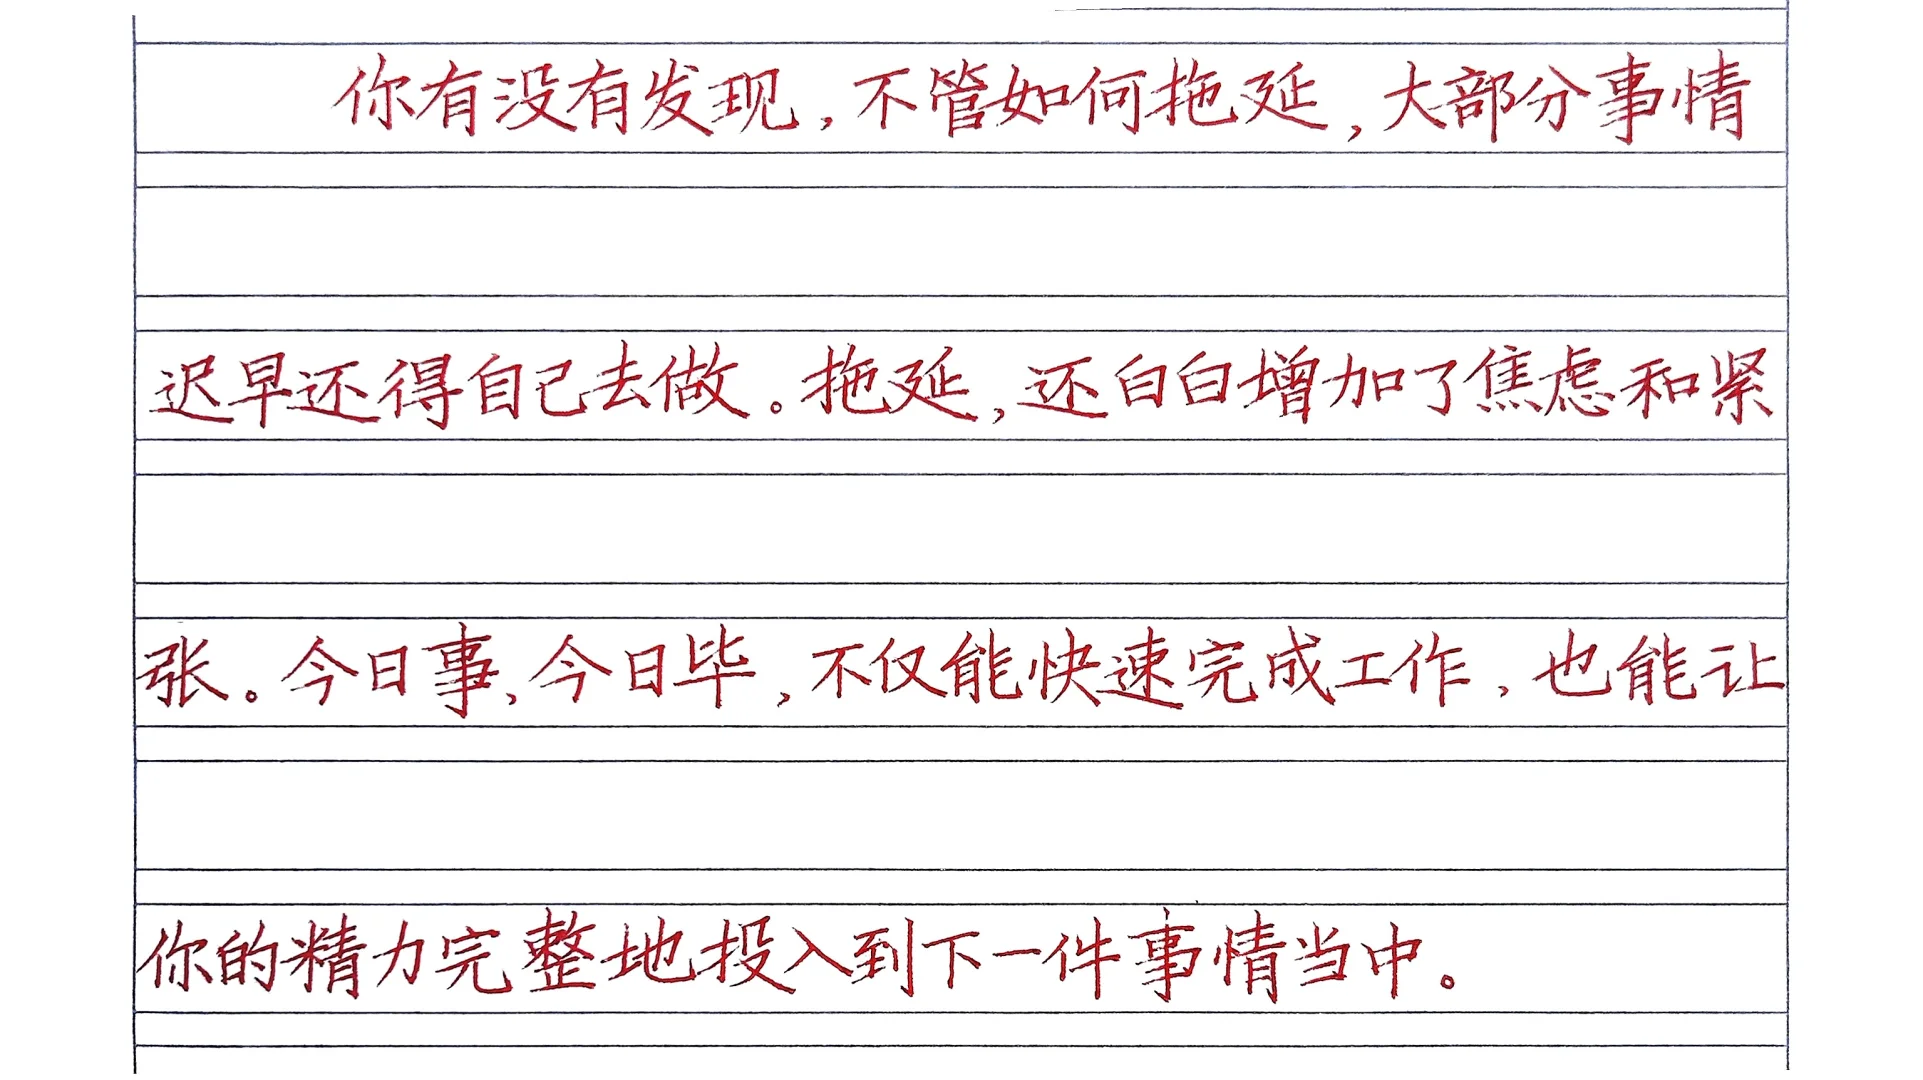 你有没有发现,不管如何拖延,大部分事情
迟早还得自己去做。拖延,还白白增加了焦虑和紧
张。今日事,今日毕,不仅能快速完成工作,也能让
你的精力完整地投入到下一件事情当中。